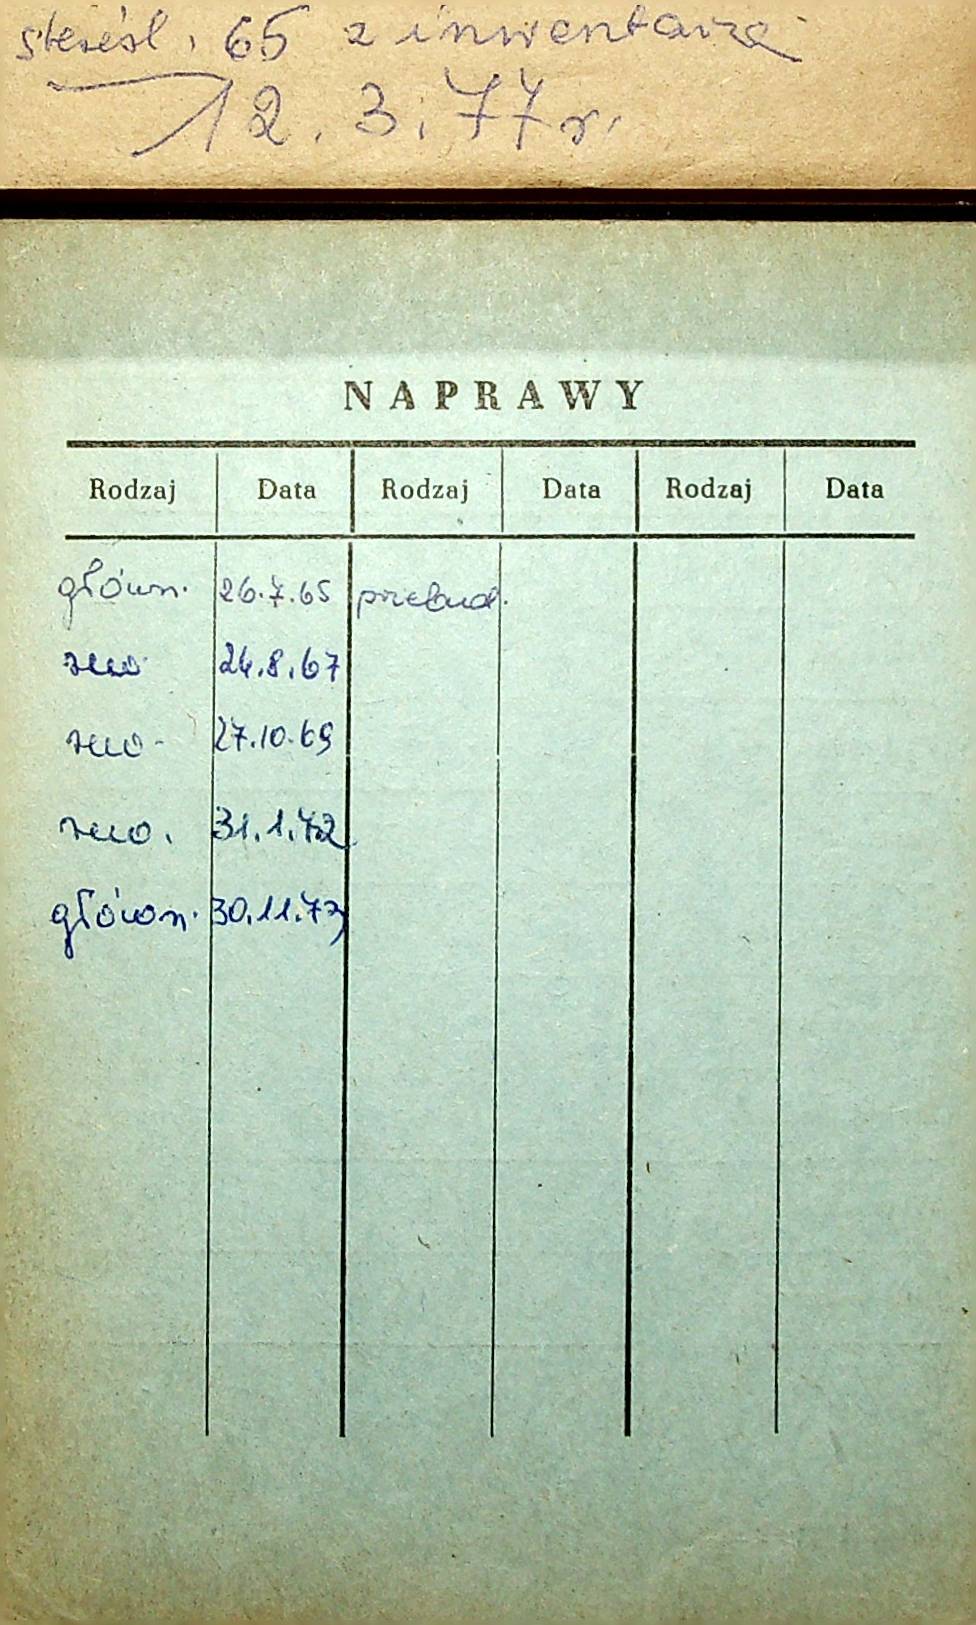 skreśl. 65 z inwentarza
12.3.77r.
NAPRAWY
Rodzaj Data Rodzaj Data Rodzaj Data
główn. 26.7.65 przebud.
24.8.67
27.10.69
31.1.72
główn. 30.11.73